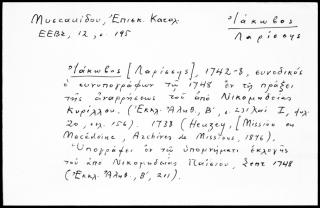 Μυσσακίδου, Ἐπισκ. Καταλ.
ΕΕΒΣ, 12, σ. 195
Ἰάκωβος
Λαρίσσης
Ἰάκωβος [Λαρίσσης], 1742-8, συνοδικός
ὁ συνυπογράφων τῷ 1748 ἐν τῇ πράξει
τῆς ἀναρρήσεως τοῦ ἀπὸ Νικομηδείας
Κυρίλλου. (Ἐκκλ. Ἀλήθ., Β', 231
20, σ. 156). 1738 (Heuzey, [Mission en
Macédoine, Archives de Missions, 1876).
Ὑπογράφει ἐν τῷ ὑπομνήματι ἐκλογῆς
τοῦ ἀπὸ Νικομηδείας Παϊσίου, Σεπτ 1748
(Ἐκκλ. Ἀλήθ., Β', 211).